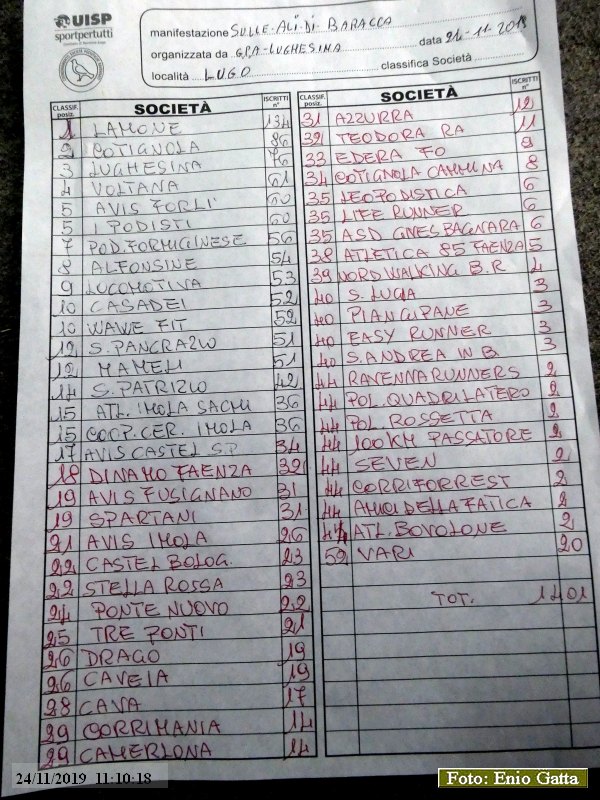 UISP
sportpertutti
manifestazione SULLE-ALI-DI BARACCA
organizzata da G.P.A-LUGHESINA data 24-11-2019
località LUGO classifica Società
CLASSIF. posiz. SOCIETÀ ISCRITTI n°
1 LAMONE 134
2 COTIGNOLA 86
3 LUGHESINA 76
4 VOLTANA 61
5 AVIS FORLI' 60
5 I PODISTI 60
7 POD. FORMIGINESE 56
8 ALFONSINE 54
9 LOCOMOTIVA 53
10 CASADEI 52
10 WAWE FIT 52
12 S. PANCRAZIO 51
12 MAMELI 51
14 S. PATRIZIO 42
15 ATL. IMOLA SACMI 36
15 COOP. CER. IMOLA 36
17 AVIS CASTEL S.P 34
18 DINAMO FAENZA 32
19 AVIS FUSIGNANO 31
19 SPARTANI 31
21 AVIS IMOLA 26
22 CASTEL BOLOG. 23
22 STELLA ROSSA 23
24 PONTE NUOVO 22
25 TRE PONTI 21
26 DRAGO 19
26 CAVEJA 19
28 CAVA 17
29 CORRIMANIA 14
29 CAMERLONA 14
CLASSIF. posiz. SOCIETÀ ISCRITTI n°
31 AZZURRA 12
32 TEODORA RA 11
33 EDERA FO 9
34 COTIGNOLA CAMMINA 8
35 LEOPODISTICA 6
35 LIFE RUNNER 6
35 ASD GNES BAGNARA 6
38 ATLETICA 85 FAENZA 5
39 NORD WALKING B.R 4
40 S. LUCIA 3
40 PIANGIPANE 3
40 EASY RUNNER 3
40 S. ANDREA IN B. 3
44 RAVENNA RUNNERS 2
44 POL. QUADRILATERO 2
44 POL. ROSSETTA 2
44 100 KM PASSATORE 2
44 SEVEN 2
44 CORRIFORREST 2
44 AMICI DELLA FATICA 2
44 ATL. BOVOLONE 2
52 VARI 20
TOT. 1401
24/11/2019 11:10:18
Foto: Enio Gatta